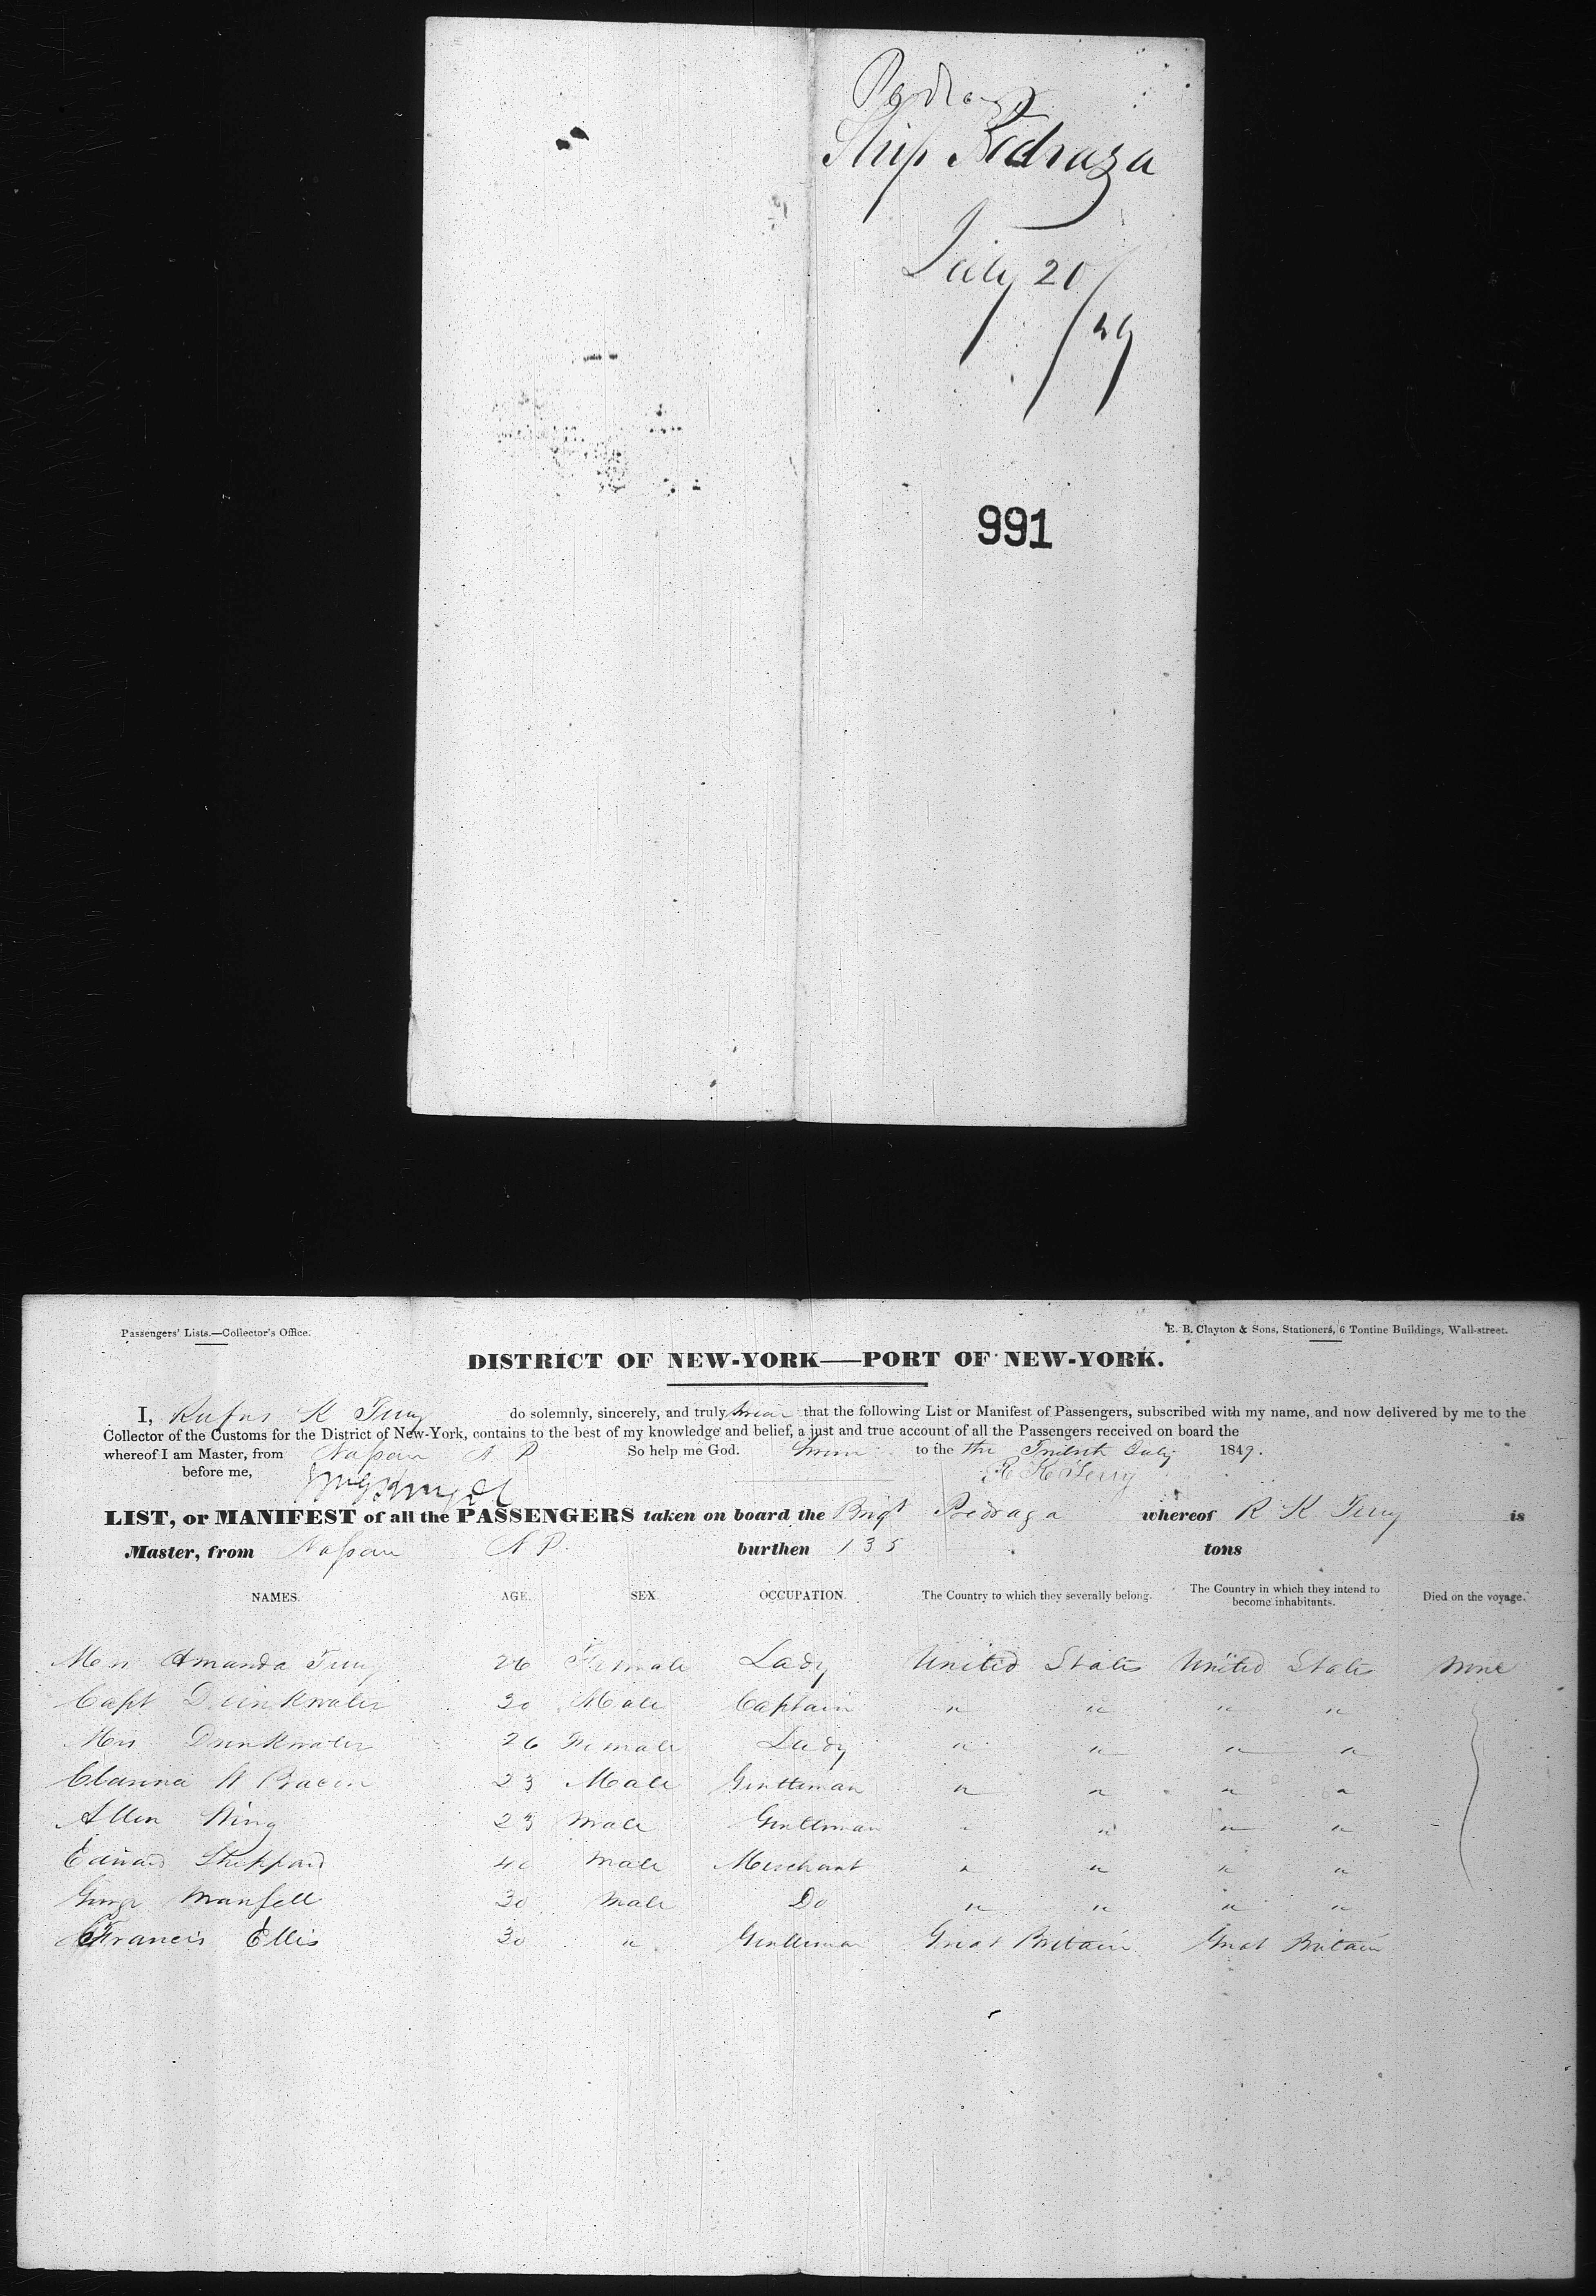 Pedraza
Ship Pedraza
July 20
/49
991
Passengers' Lists.—Collector's Office.
E. B. Clayton & Sons, Stationers, 6 Tontine Buildings, Wall-street.
DISTRICT OF NEW-YORK—PORT OF NEW-YORK.
I, Rufus K Terry do solemnly, sincerely, and truly swear that the following List or Manifest of Passengers, subscribed with my name, and now delivered by me to the
Collector of the Customs for the District of New-York, contains to the best of my knowledge and belief, a just and true account of all the Passengers received on board the
whereof I am Master, from Nassau N P So help me God. Sworn to the the July 1849.
before me, R K Terry
LIST, or MANIFEST of all the PASSENGERS taken on board the Brigt Pedraza whereof R K Terry is
Master, from Nassau N P. burthen 135 tons
NAMES. AGE. SEX OCCUPATION. The Country to which they severally belong. The Country in which they intend to become inhabitants. Died on the voyage.
Mrs Amanda Terry 26 Female Lady United States United States None
Capt Drinkwater 30 Male Captain " " " "
Mrs Drinkwater 26 Female Lady " " " "
A Bacon 23 Male Gentleman " " " "
Allen King 23 Male Gentleman " " " "
Edward Sheppard 40 Male Merchant " " " "
George Mansell 30 Male Do " " " "
Francis Ellis 30 " Gentleman Great Britain Great Britain